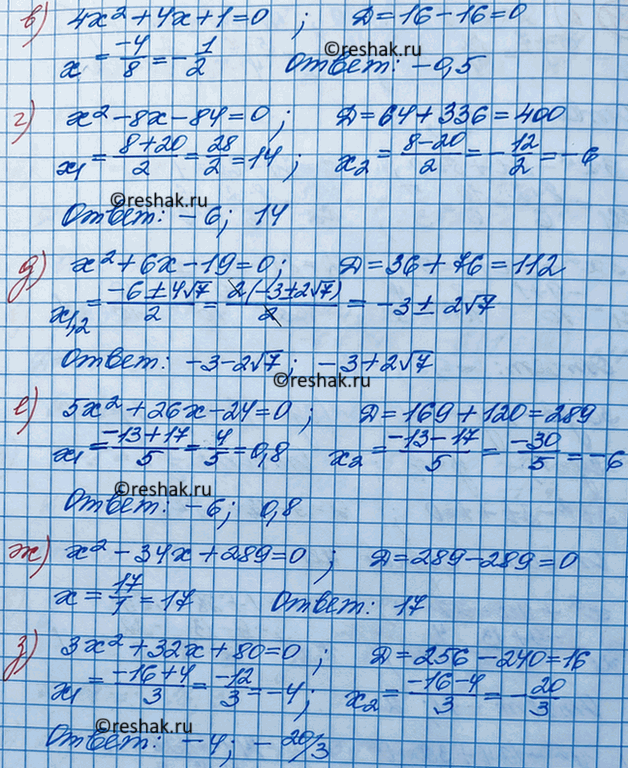 в) 4x² + 4x + 1 = 0 ; Д = 16 − 16 = 0
©reshak.ru
x = −4/8 = −1/2 Ответ: −0,5
г) x² − 8x − 84 = 0 ; Д = 64 + 336 = 400
x₁ = (8+20)/2 = 28/2 = 14 ; x₂ = (8−20)/2 = −12/2 = −6
©reshak.ru
Ответ: −6 ; 14
д) x² + 6x − 19 = 0 ; Д = 36 + 76 = 112
x₁,₂ = (−6 ± 4√7)/2 = 2(−3 ± 2√7)/2 = −3 ± 2√7
Ответ: −3 − 2√7 ; −3 + 2√7
©reshak.ru
е) 5x² + 26x − 24 = 0 ; Д = 169 + 120 = 289
x₁ = (−13+17)/5 = 4/5 = 0,8 x₂ = (−13−17)/5 = −30/5 = −6
©reshak.ru
Ответ: −6 ; 0,8
ж) x² − 34x + 289 = 0 ; Д = 289 − 289 = 0
x = 17/1 = 17 Ответ: 17
з) 3x² + 32x + 80 = 0 ; Д = 256 − 240 = 16
x₁ = (−16+4)/3 = −12/3 = −4 ; x₂ = (−16−4)/3 = −20/3
©reshak.ru
Ответ: −4 ; −20/3